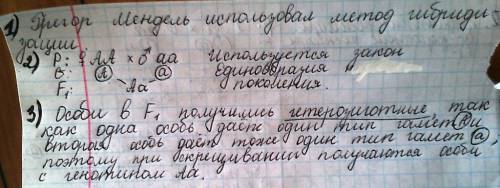 1) Грегор Мендель использовал метод гибриди
зации.
2) P: ♀ AA × ♂ aa Используется закон
G: A a Единообразия
F₁: Aa поколения.
3) Особи в F₁ получились гетерозиготные так
как одна особь даёт один тип гамет A и
вторая особь даёт тоже один тип гамет a,
поэтому при скрещивании получаются особи
с генотипом Aa.